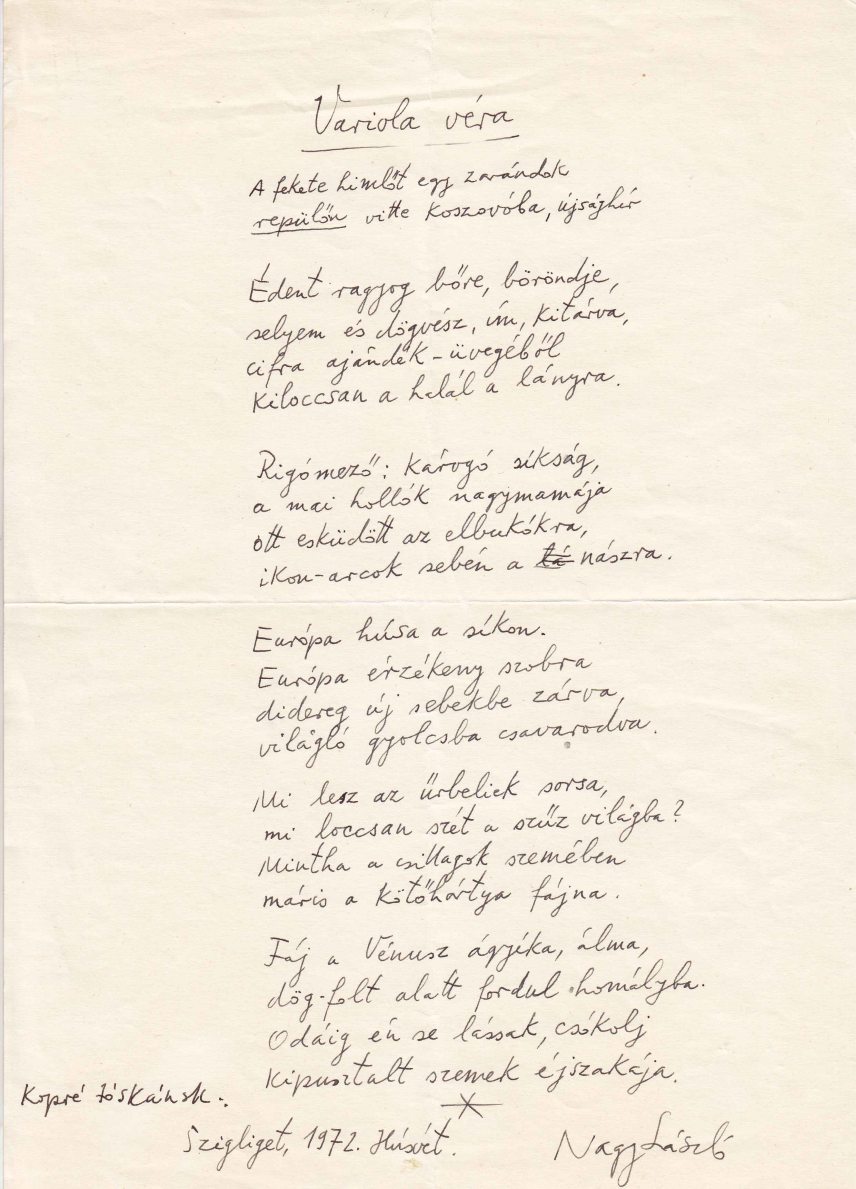 Variola véra
A fekete himlőt egy zarándok
repülőn vitte Koszovóba, újsághír
Édent ragyog bőre, böröndje,
selyem és dögvész, ím, kitárva,
cifra ajándék-üvegéből
kiloccsan a halál a lányra.
Rigómező: károgó síkság,
a mai hollók nagymamája
ott esküdött az elbukókra,
ikon-arcok sebén a nászra.
Európa húsa a síkon.
Európa érzékeny szobra
didereg új sebekbe zárva,
világló gyolcsba csavarodva.
Mi lesz az űrbeliek sorsa,
mi loccsan szét a szűz világba?
Mintha a csillagok szemében
máris a kötőhártya fájna.
Fáj a Vénusz ágyéka, álma,
dög-folt alatt fordul homályba.
Odáig én se lássak, csókolj
kipusztult szemek éjszakája.
Szigliget, 1972. Húsvét.
Nagy László